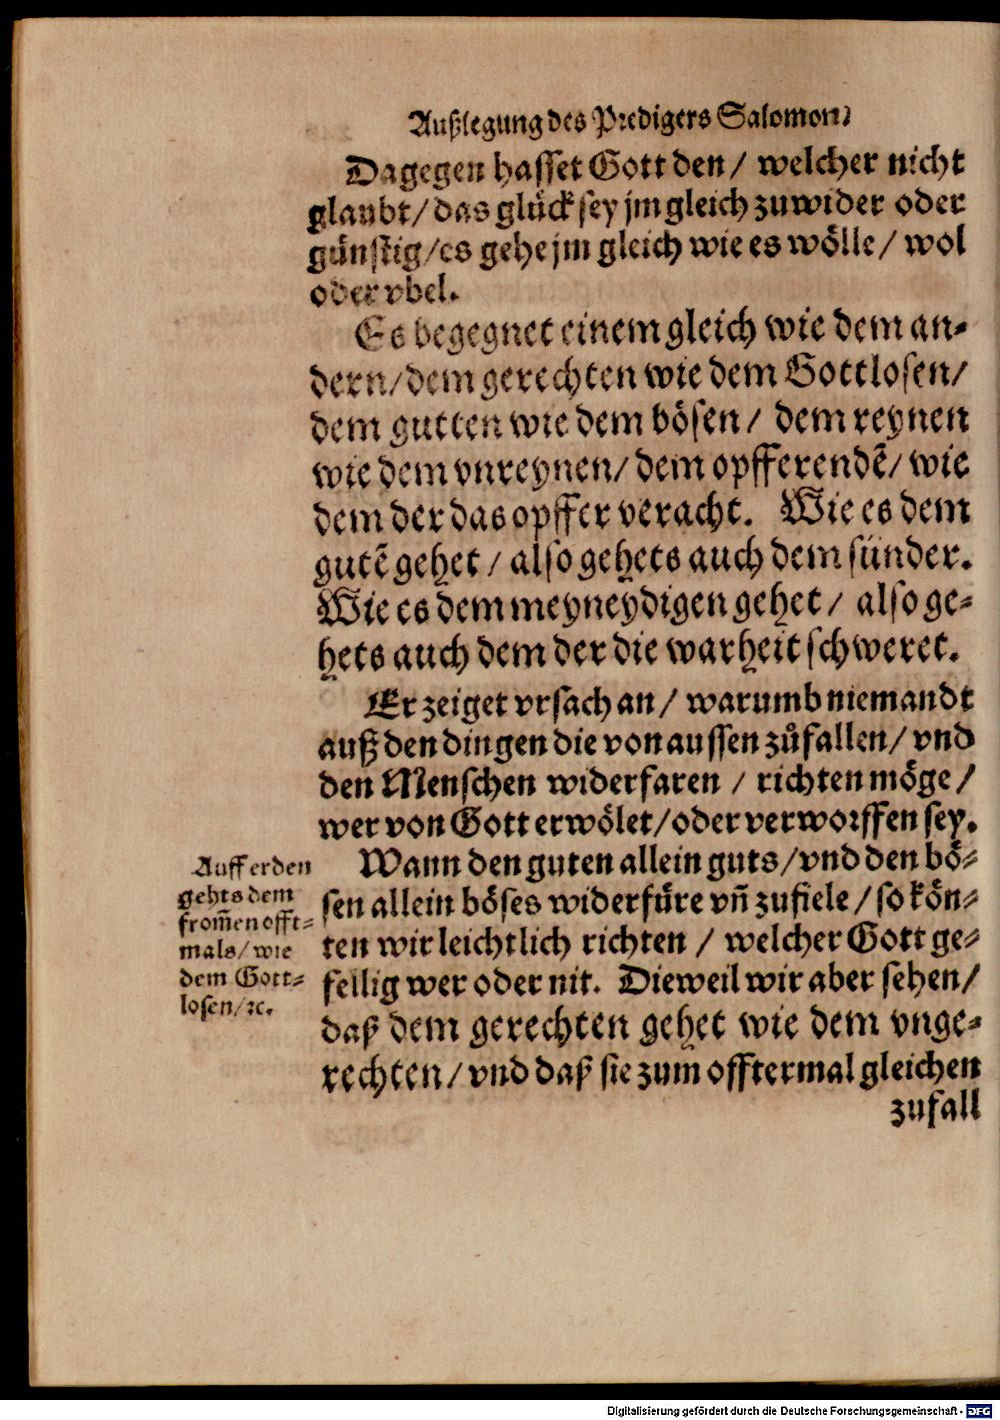 Außlegung des Predigers Salomon/
Dagegen hasset Gott den/ welcher nicht
glaubt/ das glück sey jm gleich zuwider oder
günstig/ es gehe jm gleich wie es wölle/ wol
oder vbel.
Es begegnet einem gleich wie dem an⸗
dern/ dem gerechten wie dem Gottlosen/
dem gutten wie dem bösen/ dem reynen
wie dem vnreynen/ dem opfferendẽ/ wie
dem der das opffer veracht. Wie es dem
gutẽ gehet/ also gehets auch dem sünder.
Wie es dem meyneydigen gehet/ also ge⸗
hets auch dem der die warheit schweret.
Er zeiget vrsach an/ warumb niemandt
auß den dingen die von aussen zůfallen/ vnd
den Menschen widerfaren/ richten möge/
wer von Gott erwölet/ oder verworffen sey.
Wann den guten allein guts/ vnd den bö⸗
sen allein böses widerfüre vñ zufiele/ so kön⸗
ten wir leichtlich richten/ welcher Gott ge⸗
fellig wer oder nit. Dieweil wir aber sehen/
daß dem gerechten gehet wie dem vnge⸗
rechten/ vnd daß sie zum offtermal gleichen
zufall
Auff erden
gehts dem
from̃en offt⸗
mals/ wie
dem Gott⸗
losen/ ꝛc.
Digitalisierung gefördert durch die Deutsche Forschungsgemeinschaft - DFG